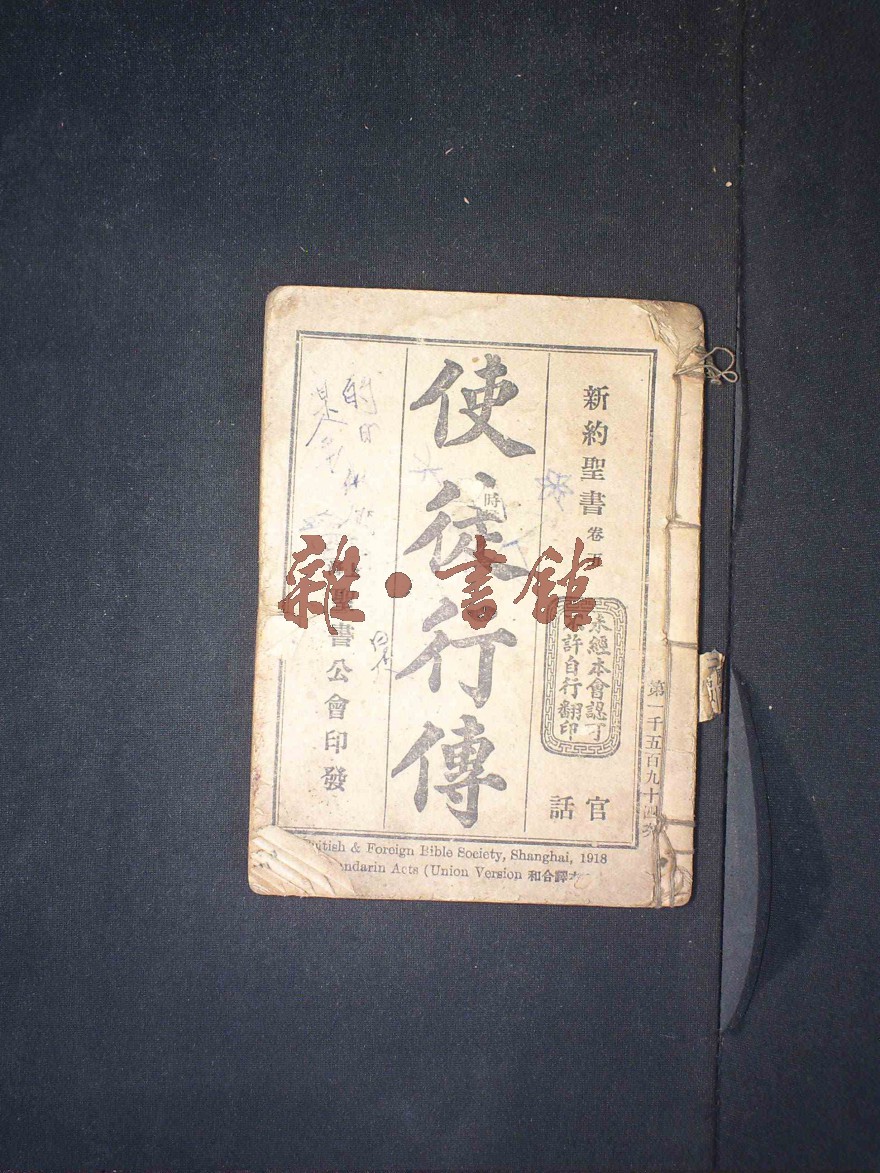 新約聖書 卷五
官話
未經本會認可
不許自行翻印
使徒行傳
聖書公會印發
第一千五百九十四
British & Foreign Bible Society, Shanghai, 1918
Mandarin Acts (Union Version 和合譯本
雜·書館